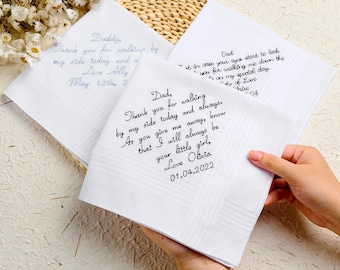 Daddy,
Thank you for walking by
my side today and al
Love Ally
May 13th, 2
Dad,
t in case your eyes start to leak
you for walking me down the
on my special day.
of Love
Dad,
Thank you for walking
by my side today and always.
As you give me away, know
that I will always be
your little girl,
Love Olivia
01.04.2022